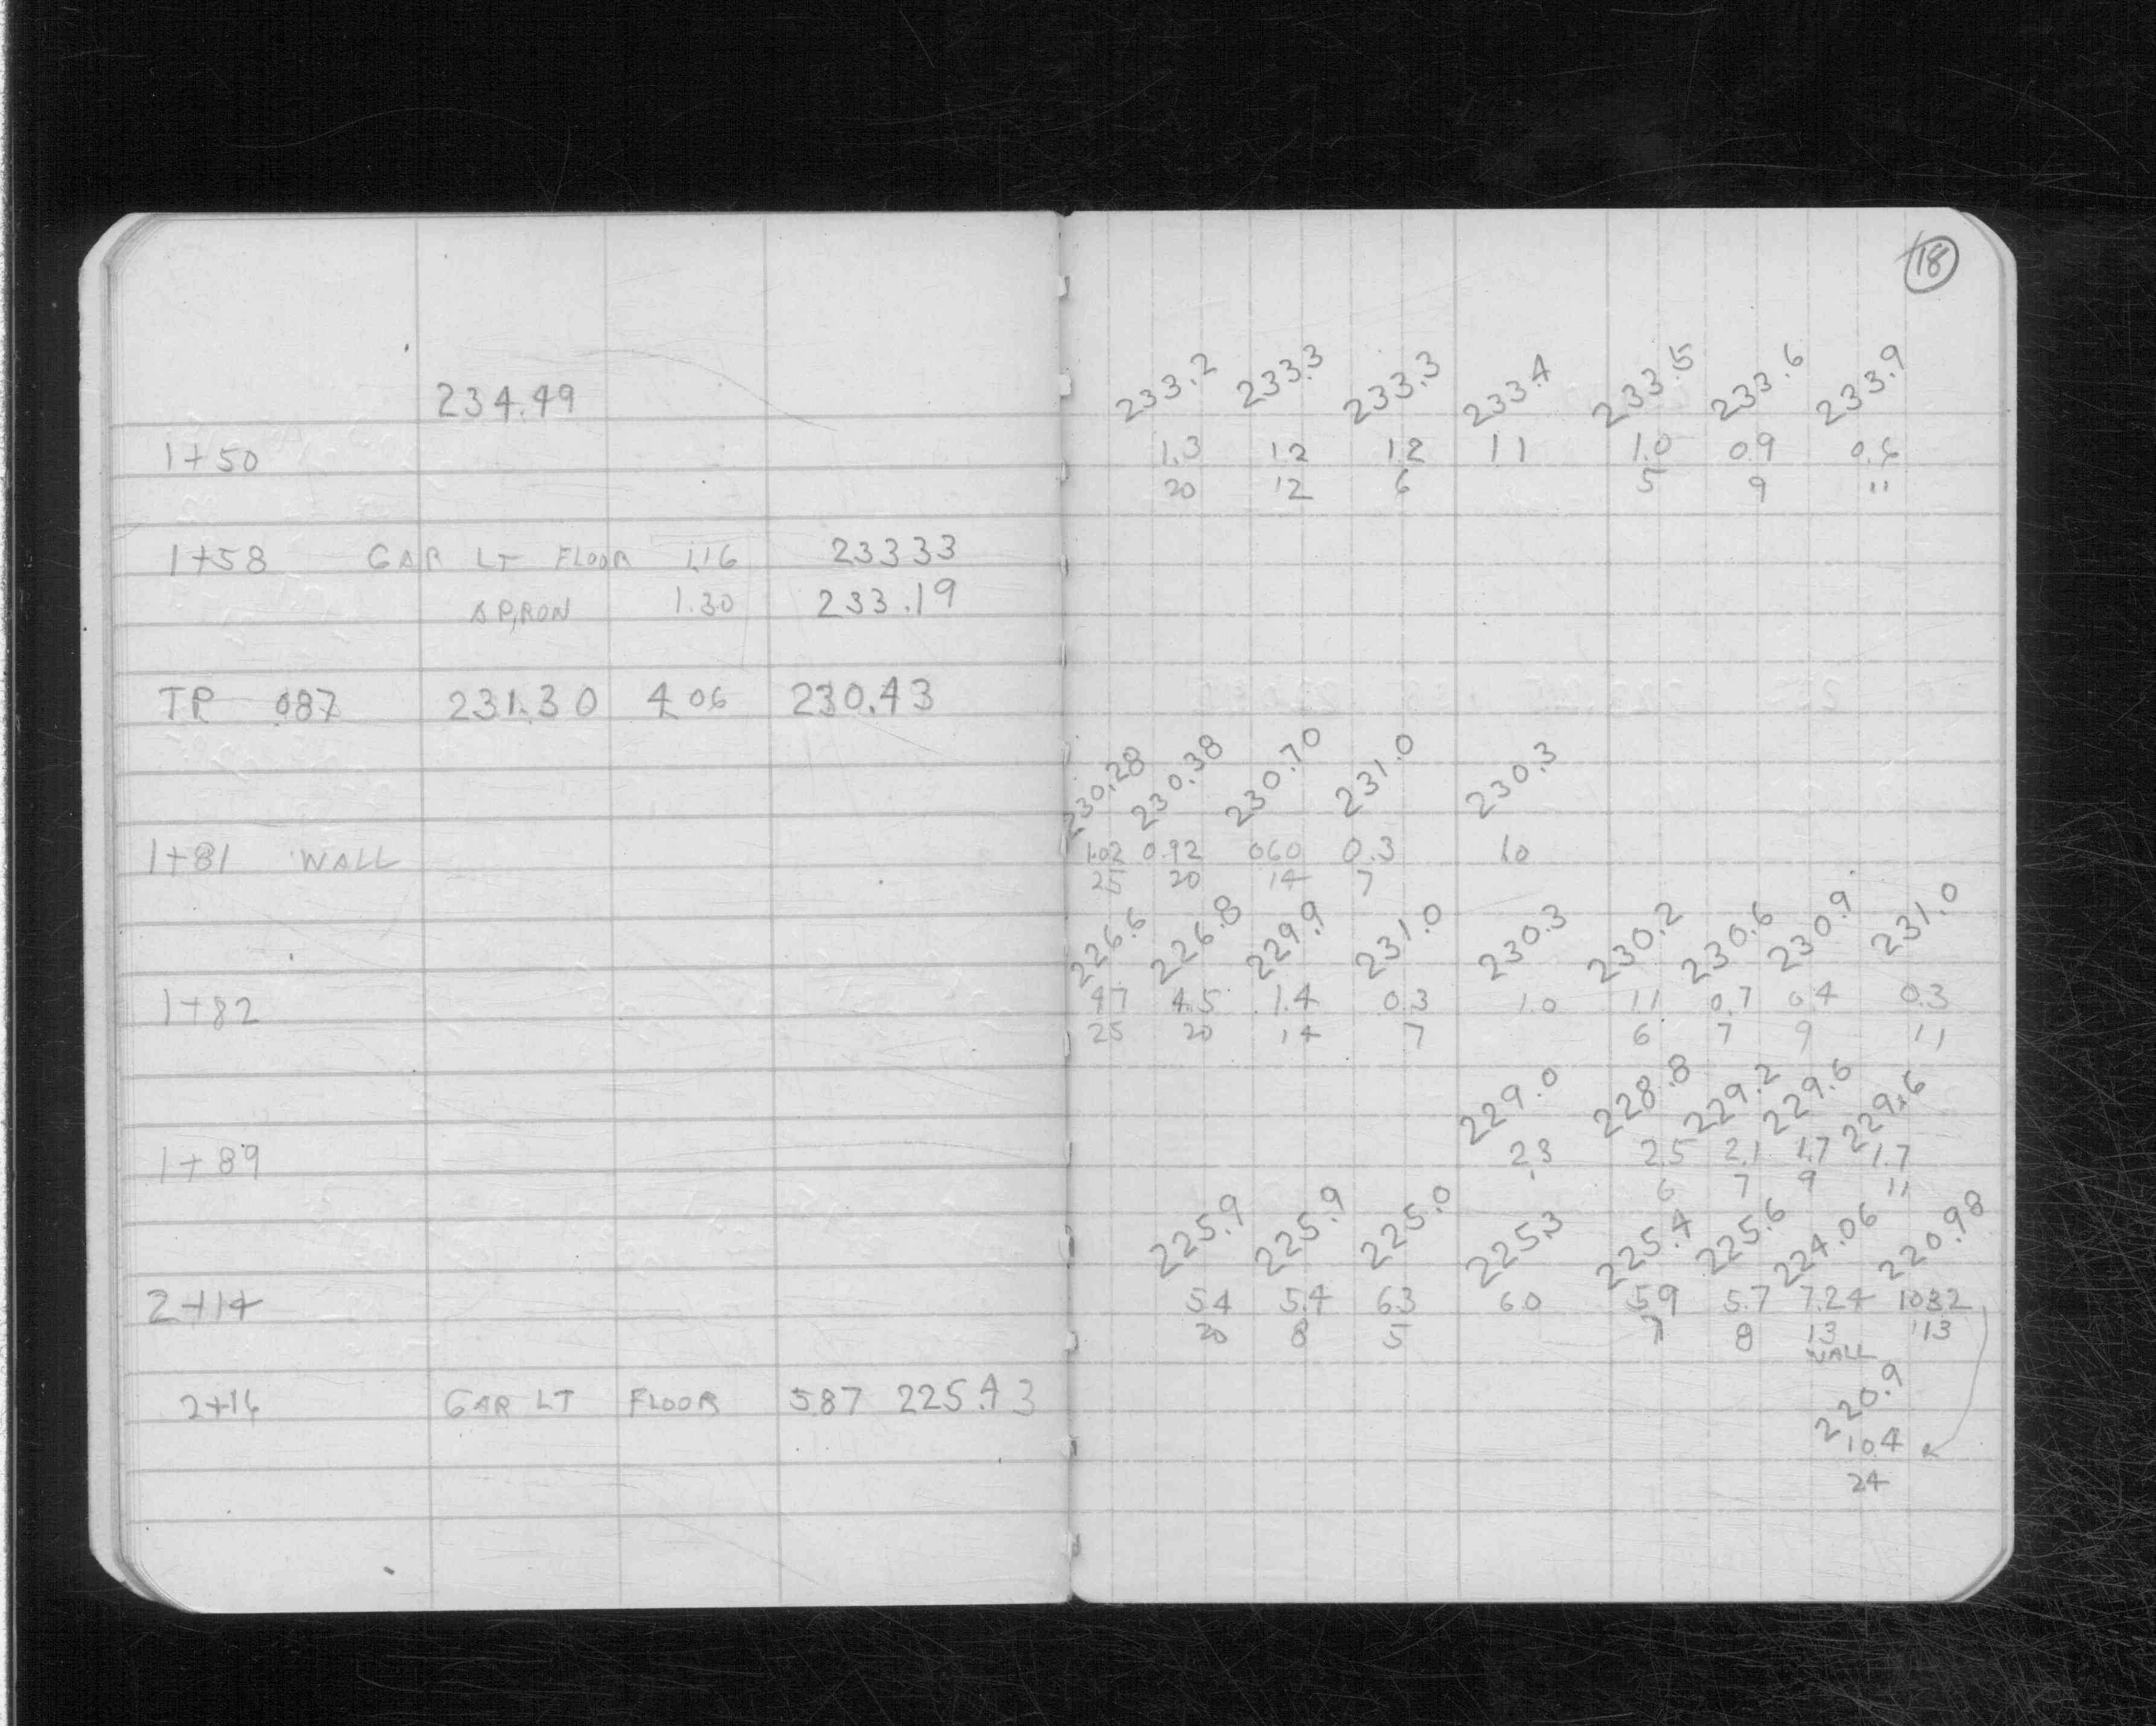 18
234.49
233.2 233.3 233.3 233.4 233.5 233.6 233.9
1+50 1.3 12 12 11 1.0 09 0.6
20 12 6 5 9 11
1+58 GAR LT FLOOR 1.16 23333
APRON 1.30 233.19
TP 087 231.30 4 06 230.43
230.28 230.38 230.70 231.0 230.3
1+81 WALL 1.02 0.92 060 0.3 10
25 20 14 7
226.6 226.8 229.9 231.0 230.3 230.2 230.6 230.9 231.0
1+82 47 4.5 1.4 0.3 1.0 11 0.7 04 0.3
25 20 14 7 6 7 9 11
229.0 228.8 229.2 229.6 229.6
1+89 2.3 2.5 2.1 1.7 1.7
6 7 9 11
225.9 225.9 225.0 225.3 225.4 225.6 224.06 220.98
2+14 54 5.4 63 60 59 5.7 7.24 1032
20 8 5 7 8 13 13
WALL
220.9
2+16 GAR LT FLOOR 587 225.43
10.4
24